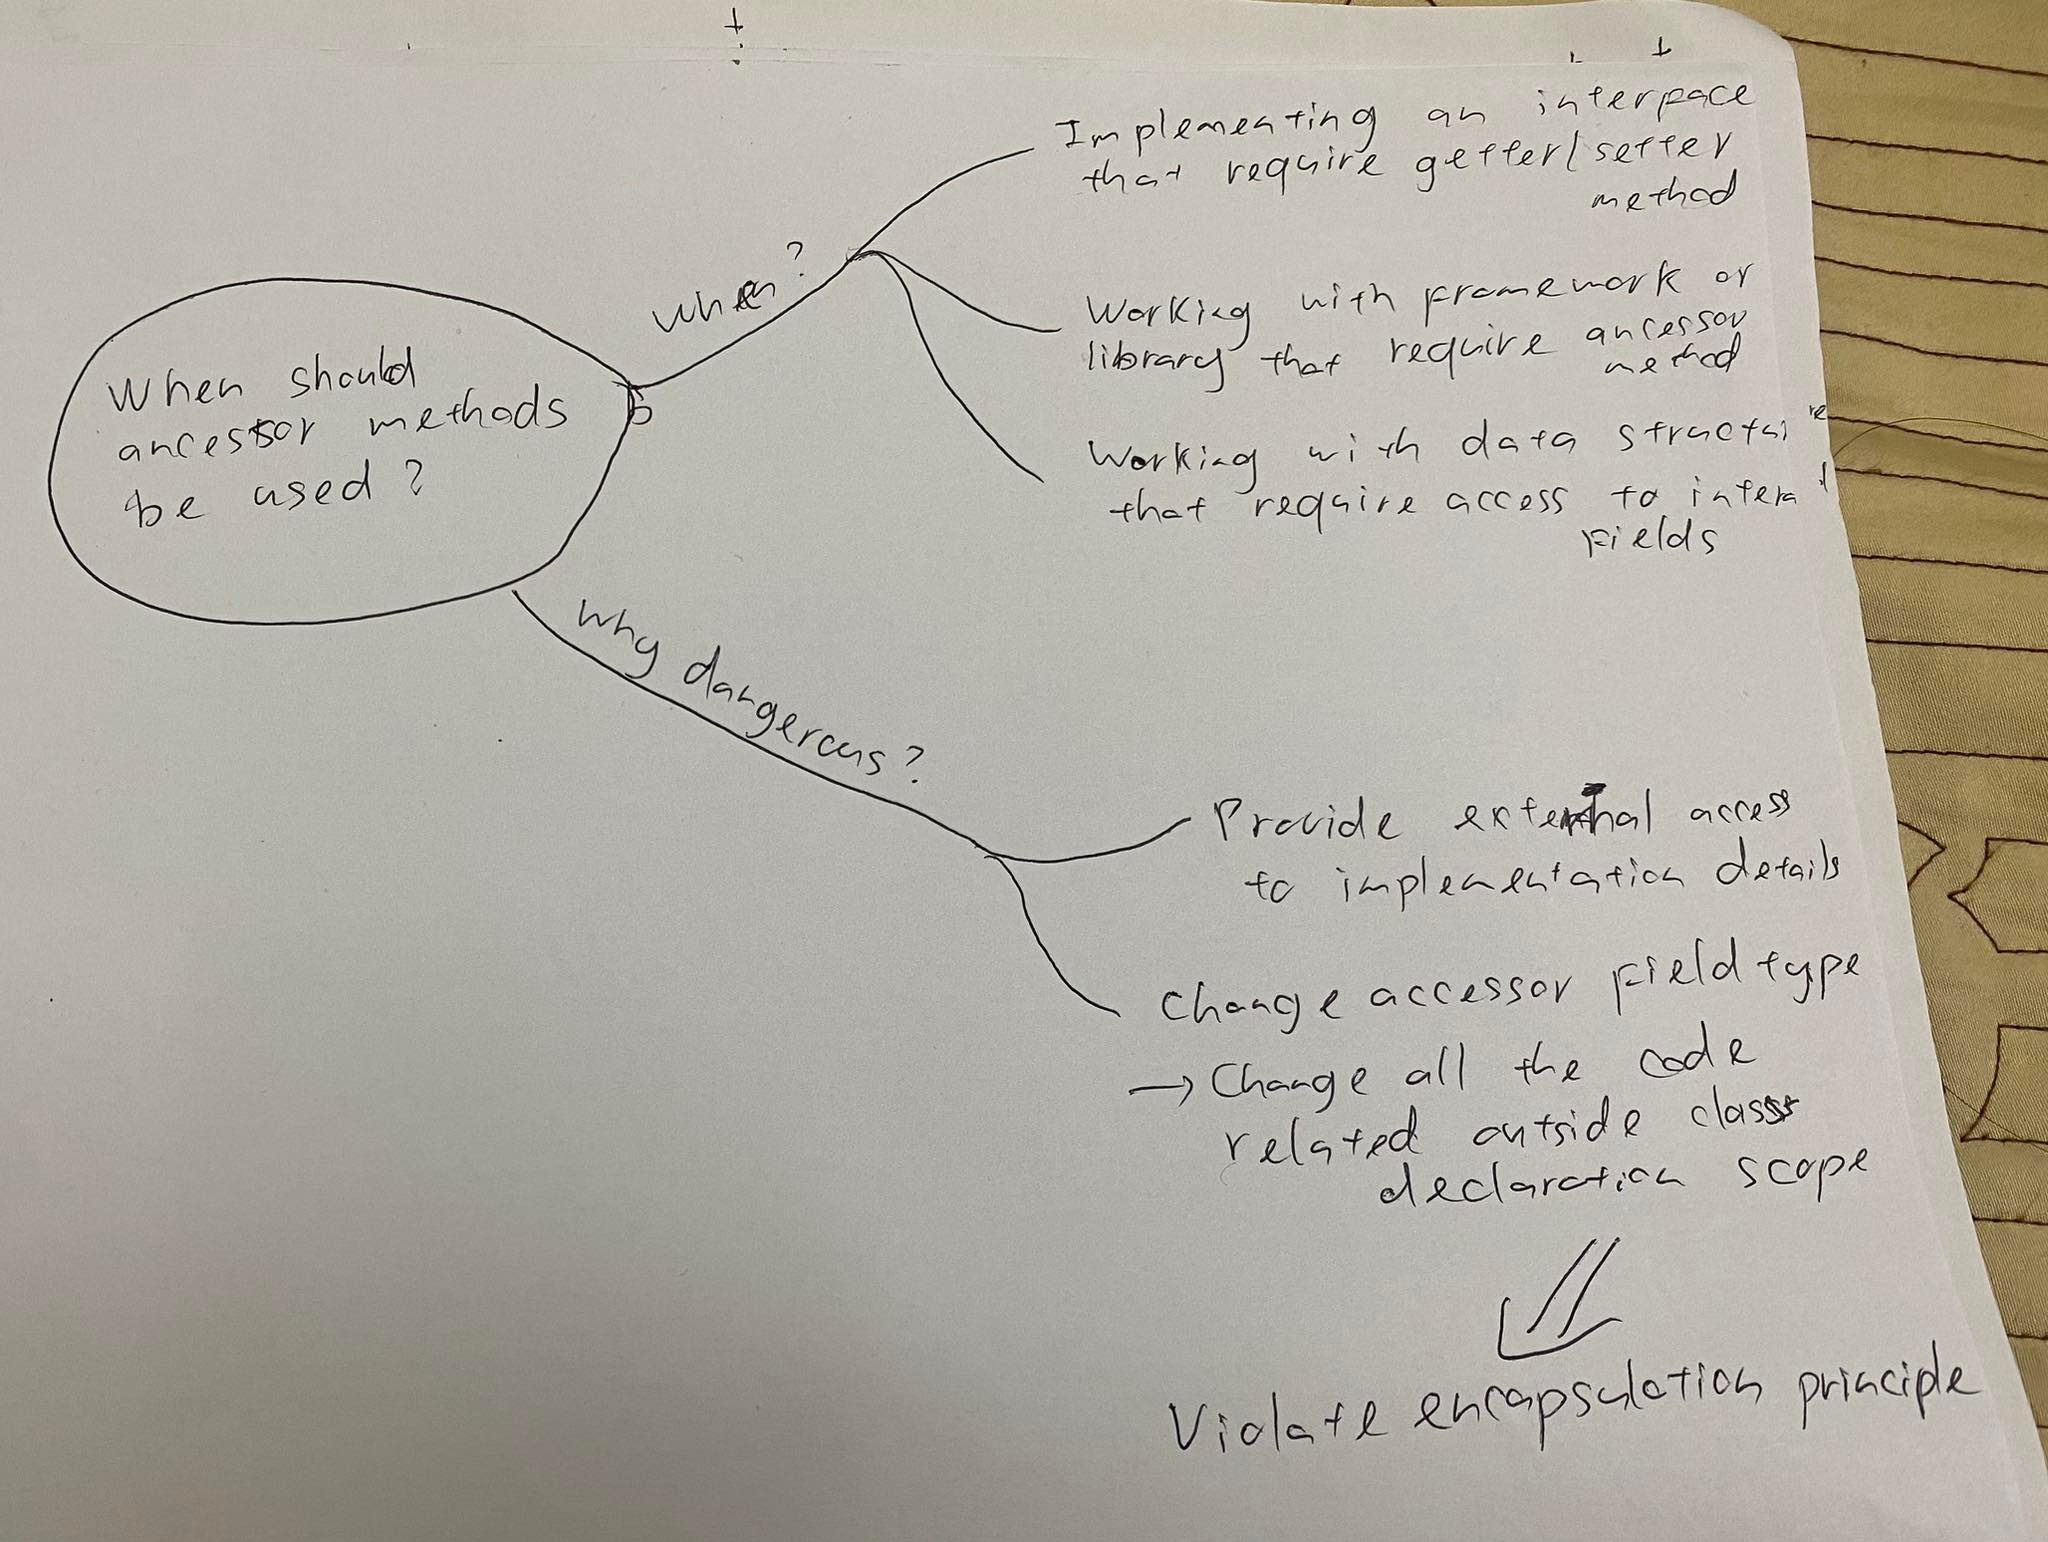 When should
ancessor methods
be used?
when?
Implementing an interface
that require getter/setter
method
Working with framework or
library that require ancessor
method
Working with data structure
that require access to internal
fields
Why dangerous?
Provide external access
to implementation details
Change accessor field type
→ Change all the code
related outside class
declaration scope
Violate encapsulation principle